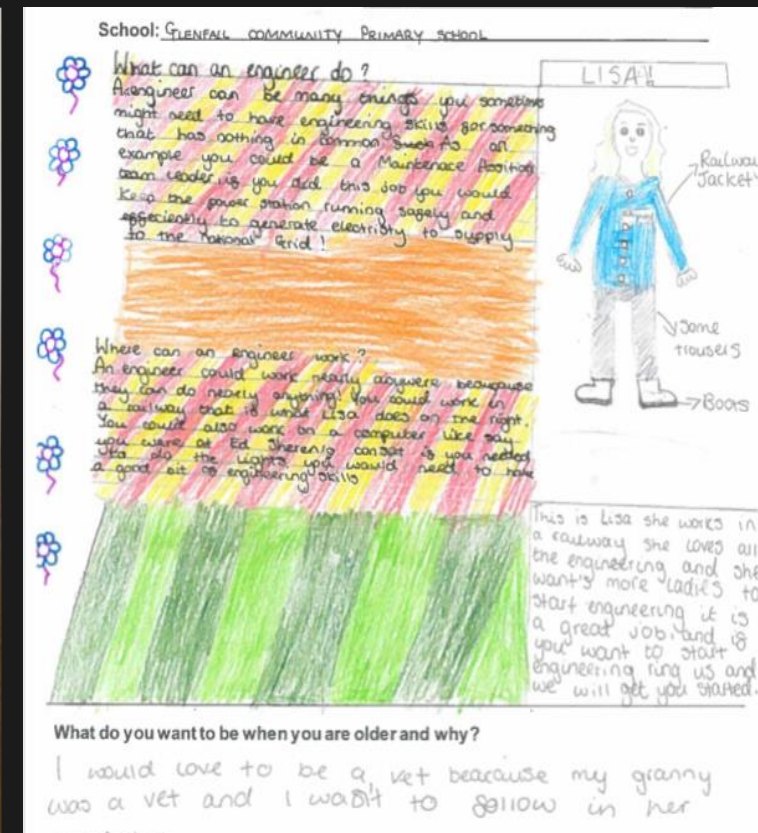 School: GLENFALL COMMUNITY PRIMARY SCHOOL
What can an engineer do?
A engineer can be many things you sometimes
might need to have engineering skills for something
that has nothing in common Such As an
example you could be a Maintenace Assition
team leader if you did this job you would
Keep the power station running safely and
effeciently to generate electristy to supply
to the National Grid!
Where can an engineer work?
An engineer could work nearly anywere beacuase
they can do nearly anything! You could work in
a railway that is what Lisa does on the right.
You could also work on a computer like say
you were at Ed Sheren's consat if you needed
to do the lights you would need to have
a good bit of engineering skills
LISA!!
Railway
Jacket
some
trousers
Boots
This is Lisa she works in
a railway she loves all
the engineering and she
want's more ladies to
start engineering it is
a great job and if
you want to start
engineering ring us and
we will get you started.
What do you want to be when you are older and why?
I would love to be a vet beacause my granny
was a vet and I want to follow in her